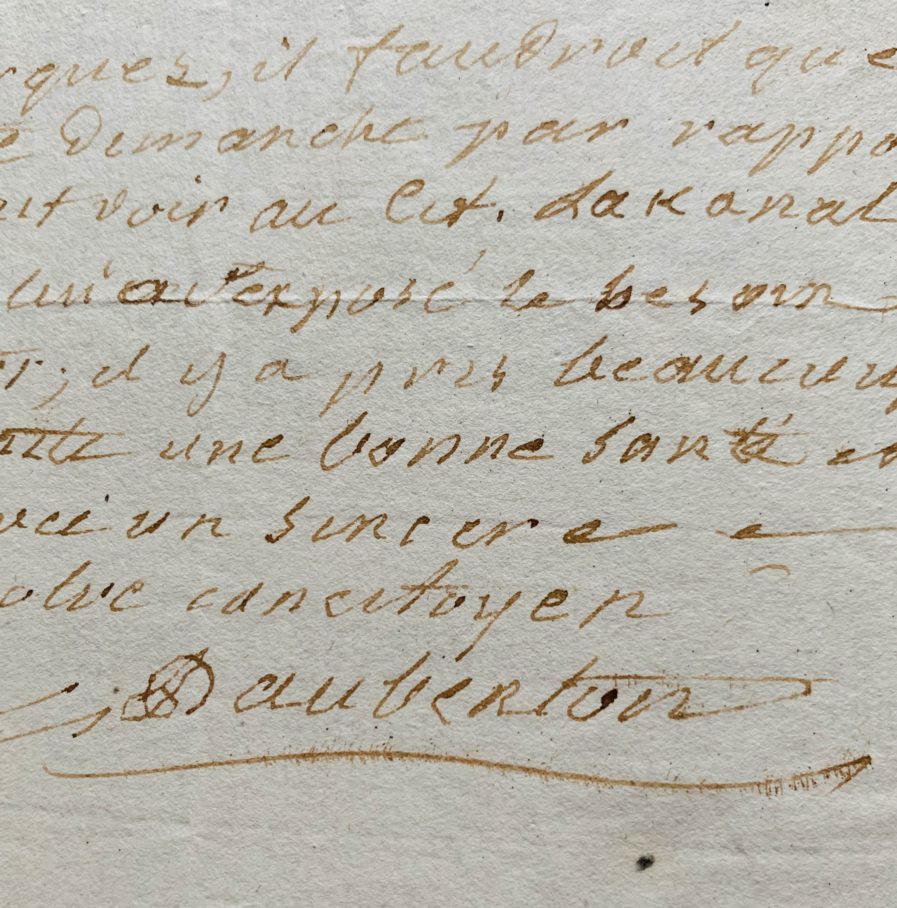 rques, il faudroit que
Dimanche par rappo
ut voir au Cit. Lakanal
lui a exposé le besoin
il y a pris beaucoup
une bonne santé et
vec un sincere
otre concitoyen
Daubenton